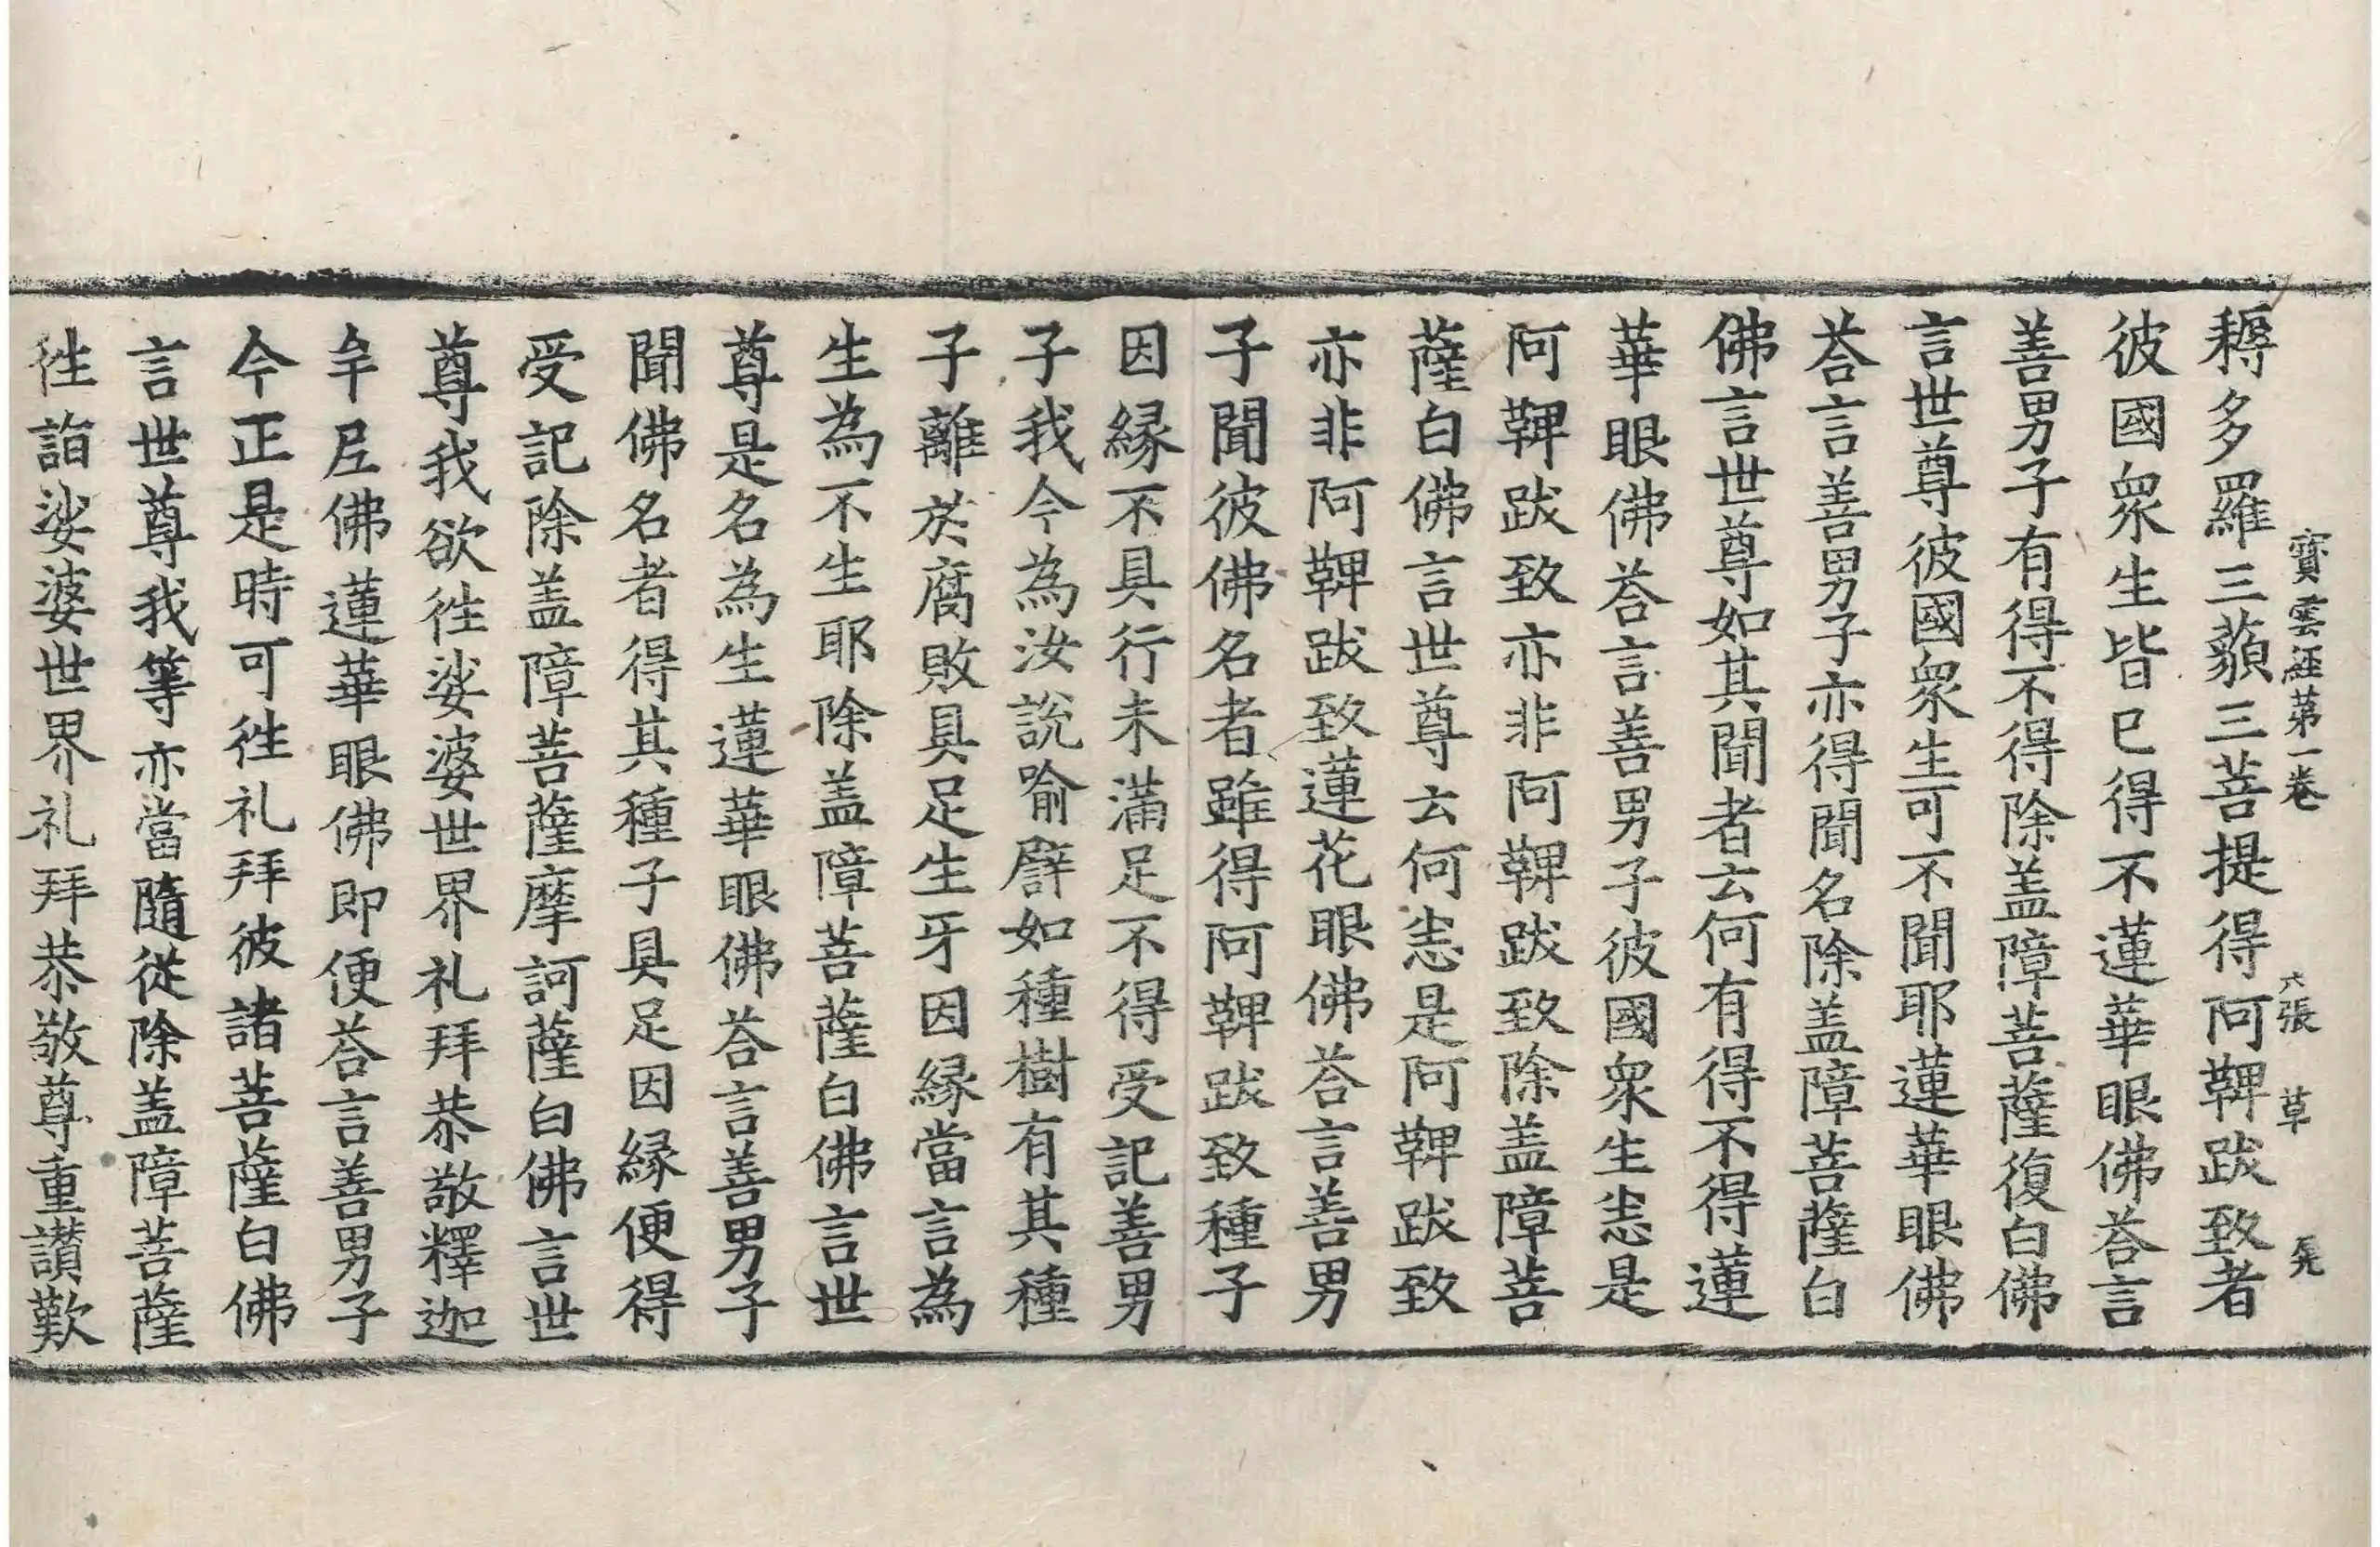 寳雲經第一卷 六張 草
耨多羅三藐三菩提得阿鞞跋致者
彼國衆生皆已得不蓮華眼佛荅言
善男子有得不得除盖障菩薩復白佛
言世尊彼國衆生可不聞耶蓮華眼佛
荅言善男子亦得聞名除盖障菩薩白
佛言世尊如其聞者云何有得不得蓮
華眼佛荅言善男子彼國衆生恙是
阿鞞跋致亦非阿鞞跋致除盖障菩
薩白佛言世尊云何恙是阿鞞跋致
亦非阿鞞跋致蓮花眼佛荅言善男
子聞彼佛名者雖得阿鞞跋致種子
因縁不具行未滿足不得受記善男
子我今為汝說喻譬如種樹有其種
子離於腐敗具足生牙因縁當言為
生為不生耶除盖障菩薩白佛言世
尊是名為生蓮華眼佛荅言善男子
聞佛名者得其種子具足因縁便得
受記除盖障菩薩摩訶薩白佛言世
尊我欲徃娑婆世界礼拜恭敬釋迦
牟尼佛蓮華眼佛即便荅言善男子
今正是時可徃礼拜彼諸菩薩白佛
言世尊我等亦當隨從除盖障菩薩
徃詣娑婆世界礼拜恭敬尊重讃歎